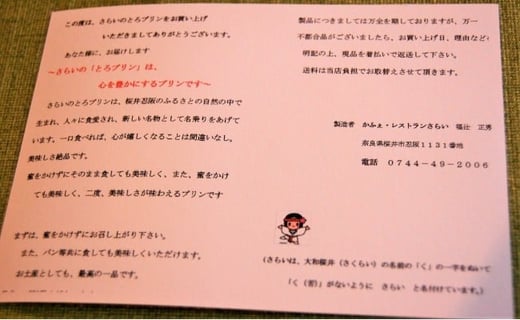 この度は、さらいのとろプリンをお買い上げ
いただきましてありがとうございます。
あなた様に、お届けします
～さらいの「とろプリン」は、
心を豊かにするプリンです～
さらいのとろプリンは、桜井忍阪のふるさとの自然の中で
生まれ、人々に食愛され、新しい名物として名乗りをあげて
います。一口食べれば、心が嬉しくなることは間違いなし。
美味しさ絶品です。
蜜をかけずにそのまま食しても美味しく、また、蜜をかけ
ても美味しく、二度、美味しさが味わえるプリンです
まずは、蜜をかけずにお召し上がり下さい。
また、パン等共に食しても美味しくいただけます。
お土産としても、最高の一品です。
製品につきましては万全を期しておりますが、万一
不都合品がございましたら、お買い上げ日、理由など
明記の上、現品を着払いで返送して下さい。
送料は当店負担でお取替えさせて頂きます。
製造者 かふぇ・レストランさらい 福辻 正秀
奈良県桜井市忍阪1131番地
電話 0744-49-2006
(さらいは、大和桜井(さくらい)の名前の「く」の一字をぬいて
「く(苦)」がないように さらい と名付けています。)